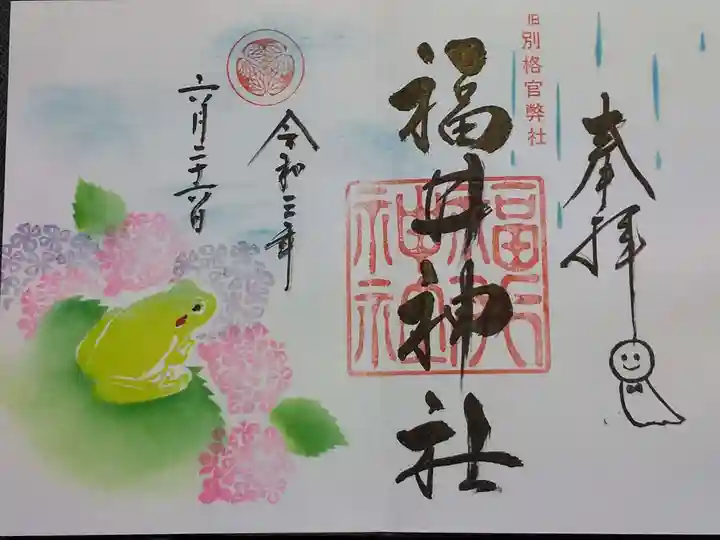 奉拝
旧別格官幣社
福井神社
福井神社
令和三年
六月二十六日